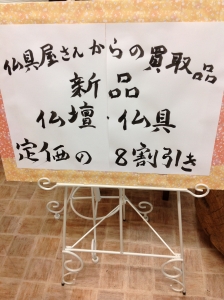 仏具屋さんからの買取品
新品
仏壇・仏具
定価の 8割引き